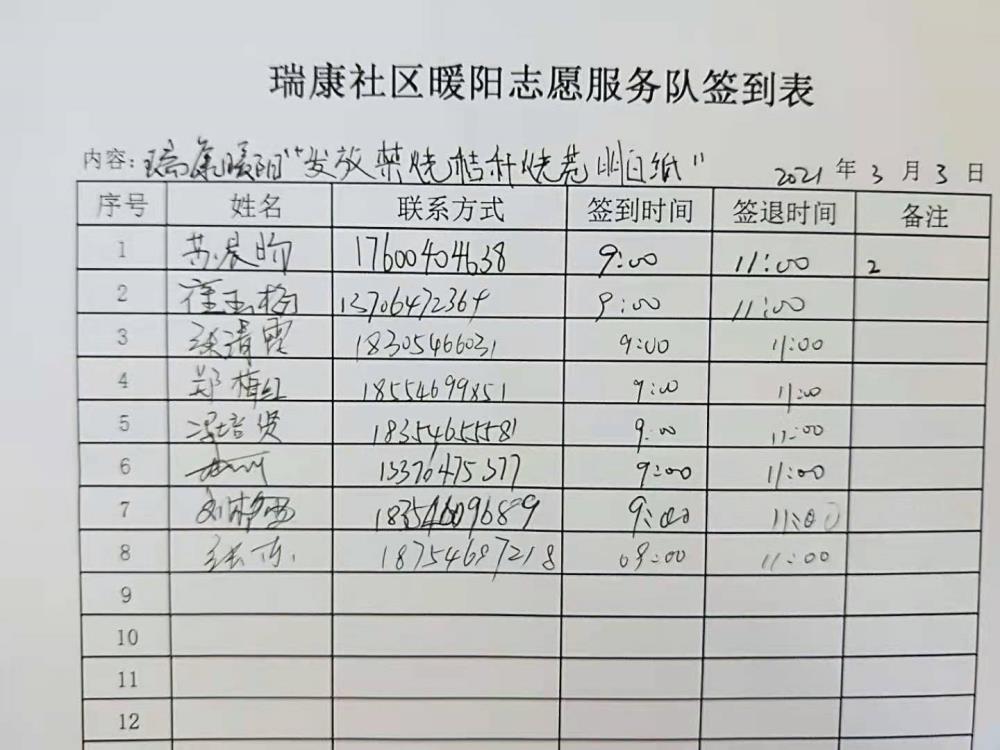 瑞康社区暖阳志愿服务队签到表
内容：瑞康暖阳"发放禁烧秸秆烧荒明白纸" 2021年3月3日
序号 姓名 联系方式 签到时间 签退时间 备注
1 苏晨昀 17600404638 9:00 11:00 2
2 崔玉梅 13706472364 9:00 11:00
3 张清霞 18305466031 9:00 11:00
4 郑梅红 18554699851 9:00 11:00
5 冯培贤 18354655581 9:00 11:00
6 13376475377 9:00 11:00
7 刘梅 18354609689 9:00 11:00
8 张 18754697218 09:00 11:00
9
10
11
12